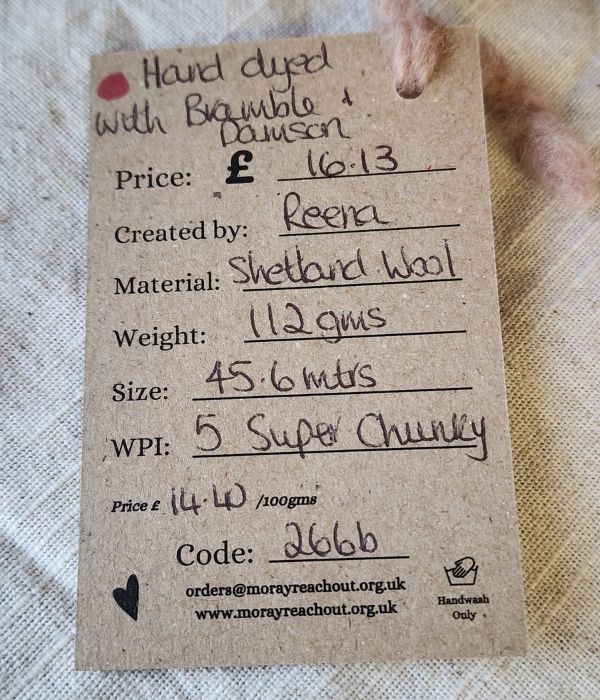 Hand dyed
with Bramble &
Damson
Price: £ 16.13
Created by: Reena
Material: Shetland Wool
Weight: 112gms
Size: 45.6 mtrs
WPI: 5 Super Chunky
Price £ 14.40 /100gms
Code: 266b
orders@morayreachout.org.uk
www.morayreachout.org.uk
Handwash
Only